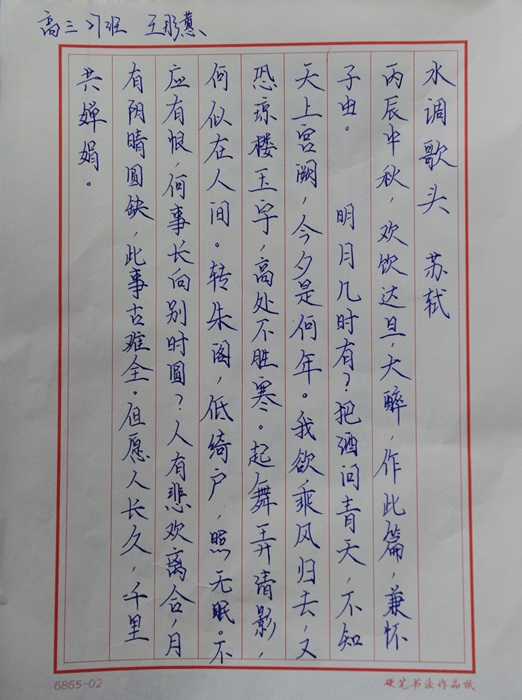 高三3班 王彤蕙
水调歌头 苏轼
丙辰中秋,欢饮达旦,大醉,作此篇,兼怀
子由。 明月几时有?把酒问青天,不知
天上宫阙,今夕是何年。我欲乘风归去,又
恐琼楼玉宇,高处不胜寒。起舞弄清影,
何似在人间。转朱阁,低绮户,照无眠。不
应有恨,何事长向别时圆?人有悲欢离合,月
有阴晴圆缺,此事古难全。但愿人长久,千里
共婵娟。
6865-02
硬笔书法作品纸